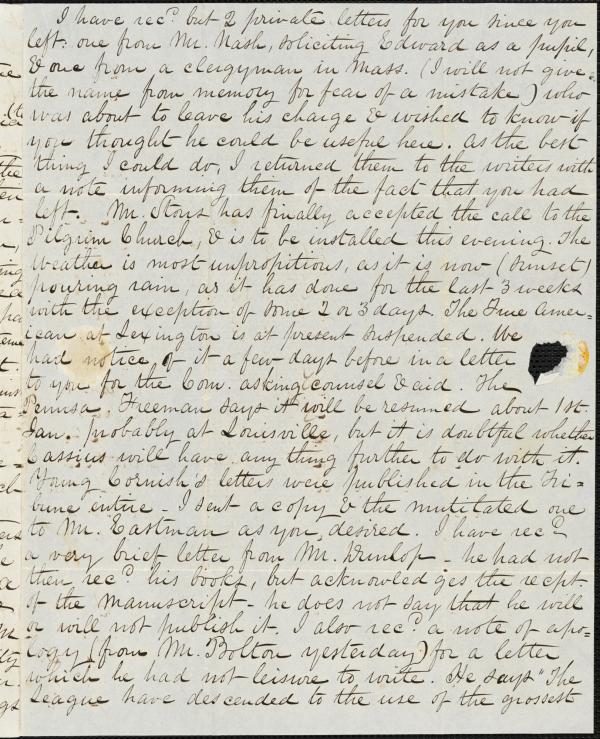 I have rec^d. but 2 private letters for you since you
left: one from Mr. Nash, soliciting Edward as a pupil,
& one from a clergyman in Mass. (I will not give
the name from memory for fear of a mistake) who
was about to leave his charge & wished to know if
you thought he could be useful here. As the best
thing I could do, I returned them to the writers with
a note informing them of the fact that you had
left. Mr. Stons has finally accepted the call to the
Pilgrim Church, & is to be installed this evening. The
weather is most unpropitious, as it is now (sunset)
pouring rain, as it has done for the last 3 weeks
with the exception of some 2 or 3 days. The True Amer-
ican at Lexington is at present suspended. We
had notice of it a few days before in a letter
to you for the Com. asking counsel & aid. The
Pennsa. Freeman says it will be resumed about 1st.
Jan. probably at Louisville, but it is doubtful whether
Cassius will have any thing further to do with it.
Young Cornish's letters were published in the Tri=
bune entire - I sent a copy & the mutilated one
to Mr. Eastman as you desired. I have rec^d.
a very brief letter from Mr. Dunlop - he had not
then rec^d. his books, but acknowledges the recpt.
of the manuscript - he does not say that he will
or will not publish it. I also rec^d. a note of apo-
logy (from Mr. Bolton yesterday) for a letter
which he had not leisure to write. He says "The
League have descended to the use of the grossest